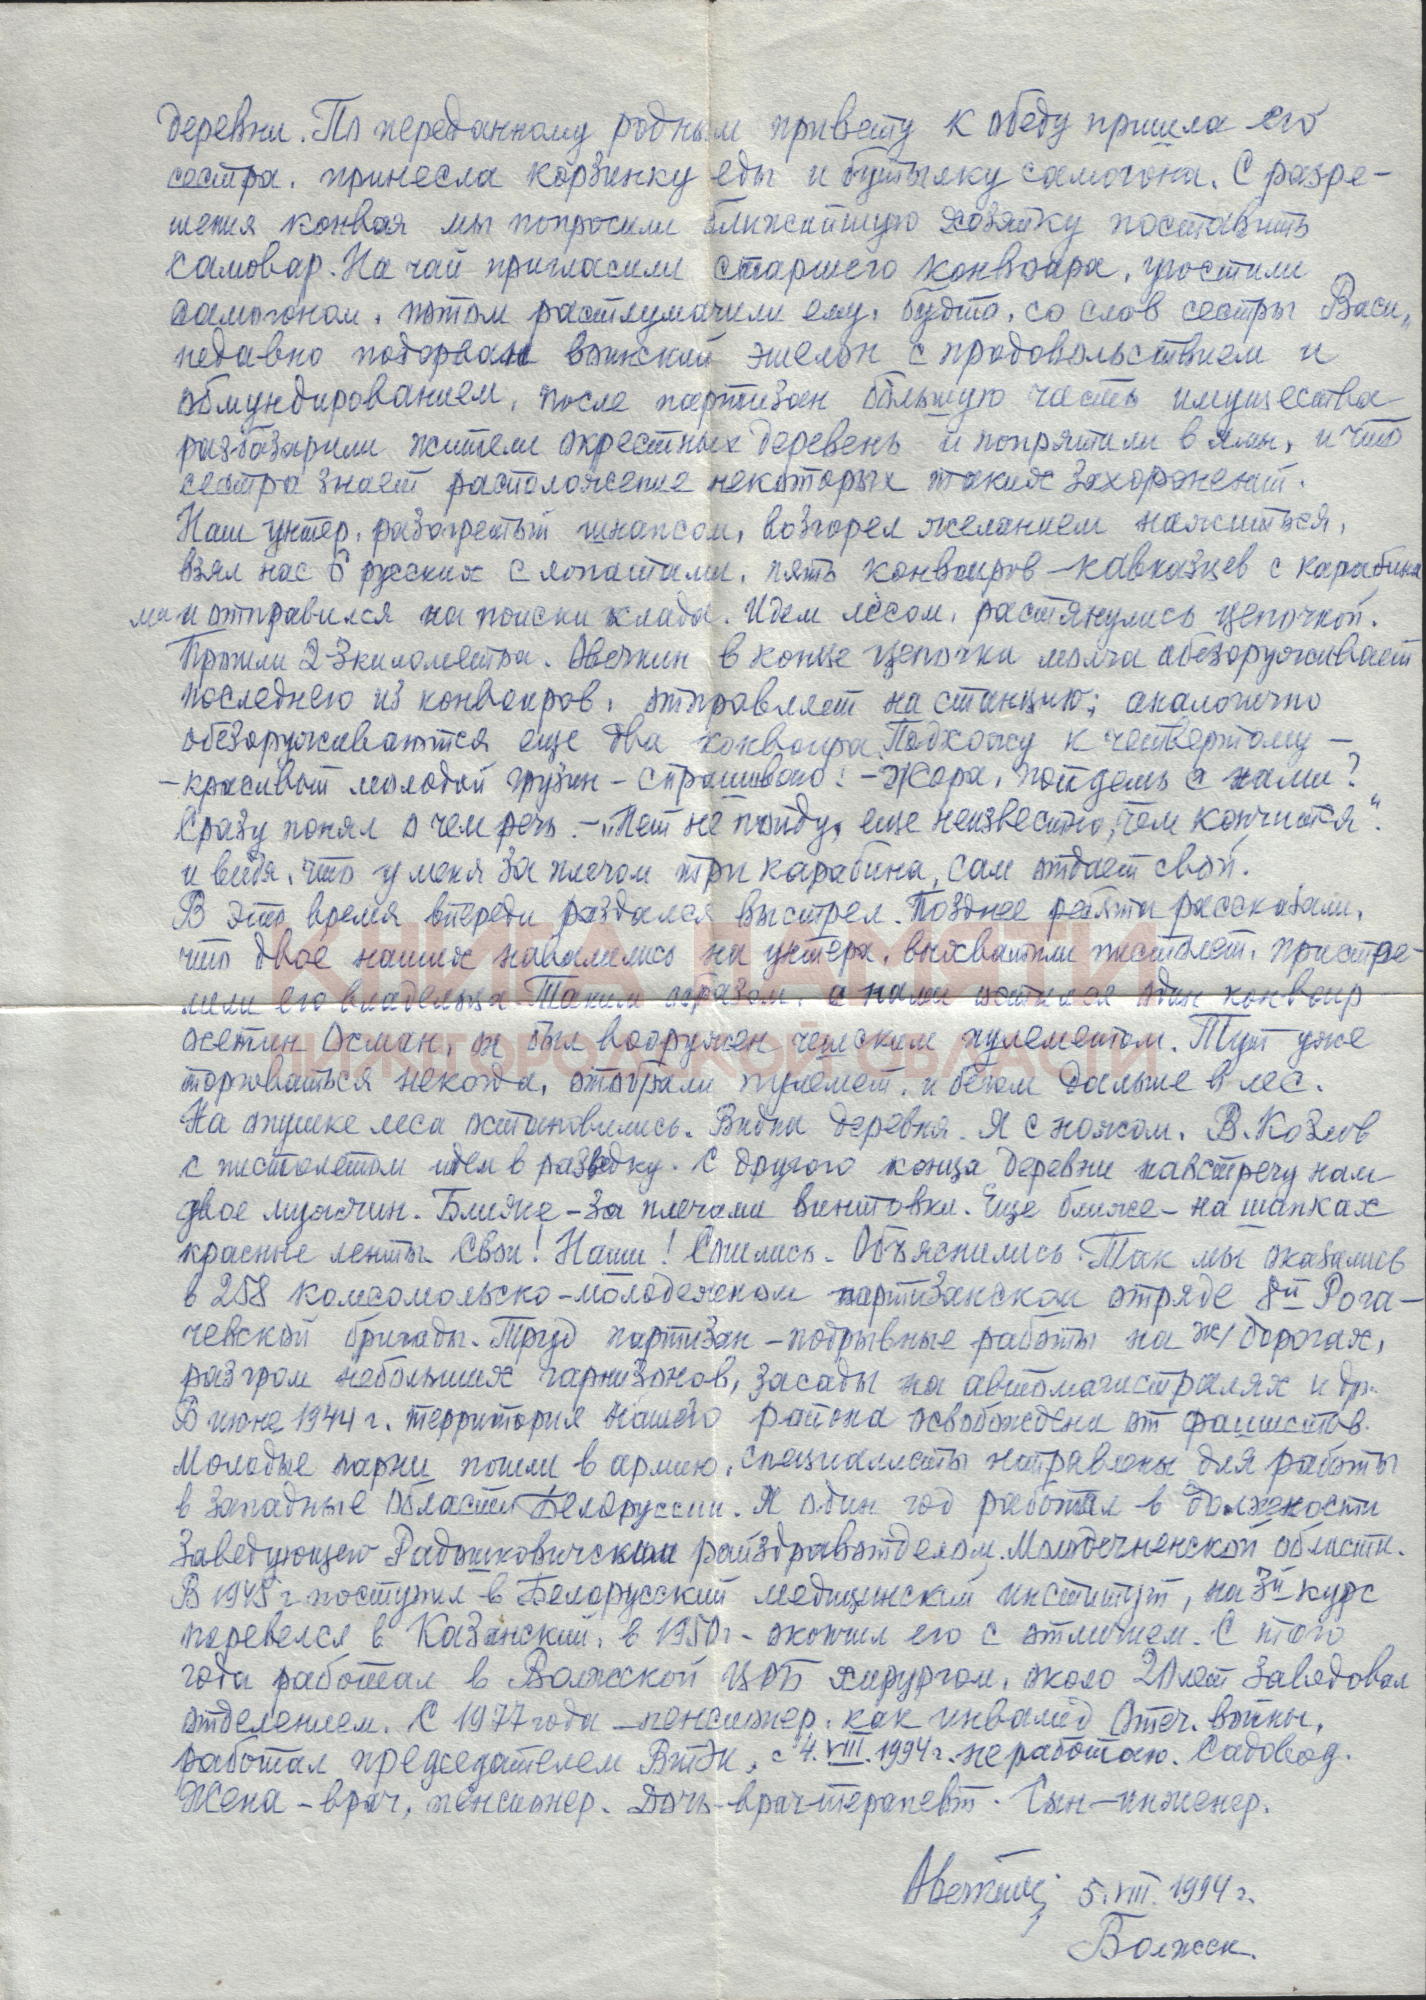 деревни. По переданному родным привету к обеду пришла его
сестра, принесла корзинку еды и бутылку самогона. С разре-
шения конвоя мы попросили ближайшую хозяйку поставить
самовар. На чай пригласили старшего конвоира, угостили
самогоном, потом растлумачили ему, будто, со слов сестры Васи,
недавно подорван воинский эшелон с продовольствием и
обмундированием, после партизан большую часть имущества
разбазарили жители окрестных деревень и попрятали в ямы, и что
сестра знает расположение некоторых таких захоронений.
Наш унтер, разогретый шнапсом, возгорел желанием нажиться,
взял нас 6 русских с лопатами, пять конвоиров - кавказцев с карабина
ми и отправился на поиски клада. Идем лесом, растянулись цепочкой.
Прошли 2-3 километра. Овечкин в конце цепочки молча обезоруживает
последнего из конвоиров, отправляет на станцию; аналогично
обезоруживаются еще два конвоира. Подхожу к четвертому -
- красивый молодой грузин - спрашиваю: - Жора, пойдешь с нами?
Сразу понял о чем речь. - „Нет не пойду, еще неизвестно, чем кончится".
и видя, что у меня за плечом три карабина, сам отдает свой.
В это время впереди раздался выстрел. Позднее ребята рассказали,
что двое наших навалились на унтера, выхватили пистолет, пристре-
лили его владельца. Таким образом, с нами остался один конвоир
осетин Осман, он был вооружен чешским пулеметом. Тут уже
торговаться некогда, отобрали пулемет и бегом дальше в лес.
На опушке леса остановились. Видна деревня. Я с ножом, В. Козлов
с пистолетом идем в разведку. С другого конца деревни навстречу нам
двое мужчин. Ближе - за плечами винтовки. Еще ближе - на шапках
красные ленты. Свои! Наши! Сошлись. Объяснились. Так мы оказались
в 258 комсомольско-молодежном партизанском отряде 8й Рога-
чевской бригады. Труд партизан - подрывные работы на ж/дорогах,
разгром небольших гарнизонов, засады на автомагистралях и др.
В июне 1944 г. территория нашего района освобождена от фашистов.
Молодые парни пошли в армию, специалисты направлены для работы
в западные области Белоруссии. Я один год работал в должности
заведующего Радошковичским райздравотделом, Молодечненской области.
В 1945 г поступил в Белорусский медицинский институт, на 3й курс
перевелся в Казанский, в 1950 г. окончил его с отличием. С того
года работал в Волжской ЦРБ хирургом, около 20 лет заведовал
отделением. С 1977 года - пенсионер, как инвалид Отеч. войны,
работал председателем ВТЭК, с 4.VIII.1994 г. не работаю. Садовод.
Жена - врач, пенсионер. Дочь - врач-терапевт. Сын - инженер.
5.VIII.1994 г.
Волжск.
КНИГА ПАМЯТИ
НИЖЕГОРОДСКОЙ ОБЛАСТИ